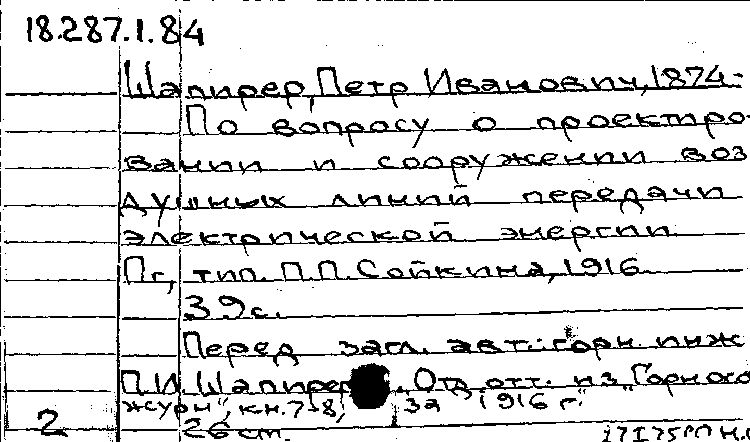 18.287.1.84
Шапирер, Петр Иванович, 1874-
По вопросу о проектиро-
вании и сооружении воз
душных линий передачи
электрической энергии.
Пг, тип. П.П. Сойкина, 1916.
39 с.
Перед загл. авт.: горн. инж
П.И. Шапирер. Отд. отт. из „Горного
журн", кн. 7-8, за 1916 г."
2 26 см.